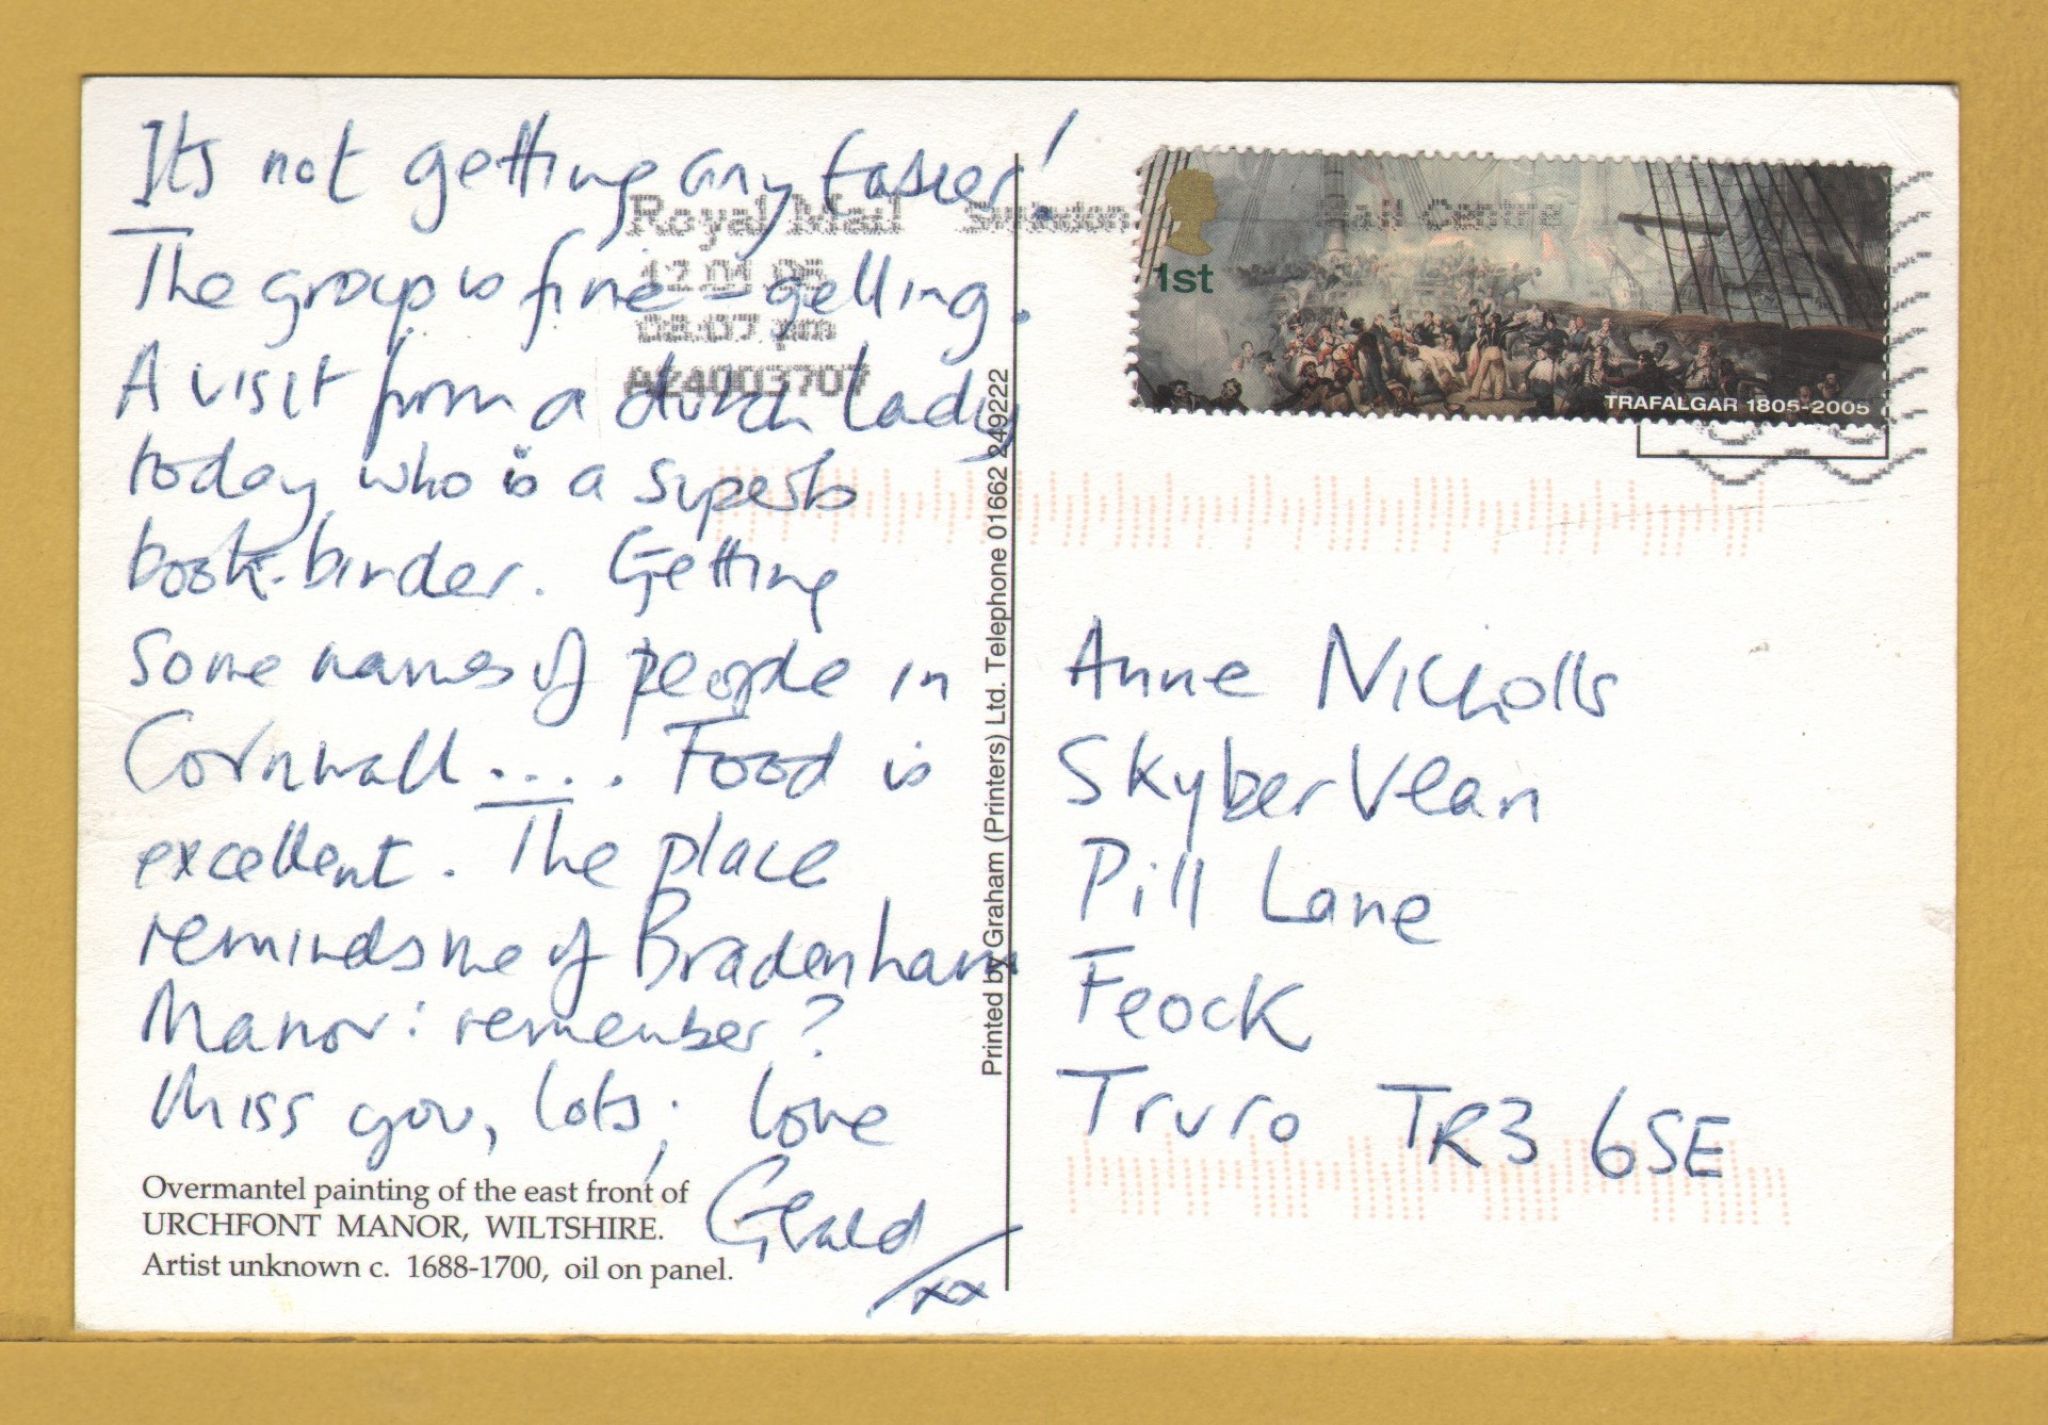 Its not getting any Easier!
The group is fine - gelling.
A visit from a dutch lady
today who is a superb
book-binder. Getting
some names of people in
Cornwall .... Food is
excellent. The place
reminds me of Bradenham
Manor: remember?
Miss you, lots; love
Gerald
xx
Overmantel painting of the east front of
URCHFONT MANOR, WILTSHIRE.
Artist unknown c. 1688-1700, oil on panel.
Printed by Graham (Printers) Ltd. Telephone 01662 249222
Royal Mail Swindon Mail Centre
08:07 pm
A24003707
1st
TRAFALGAR 1805-2005
Anne Nicholls
Skyber Vean
Pill Lane
Feock
Truro TR3 6SE